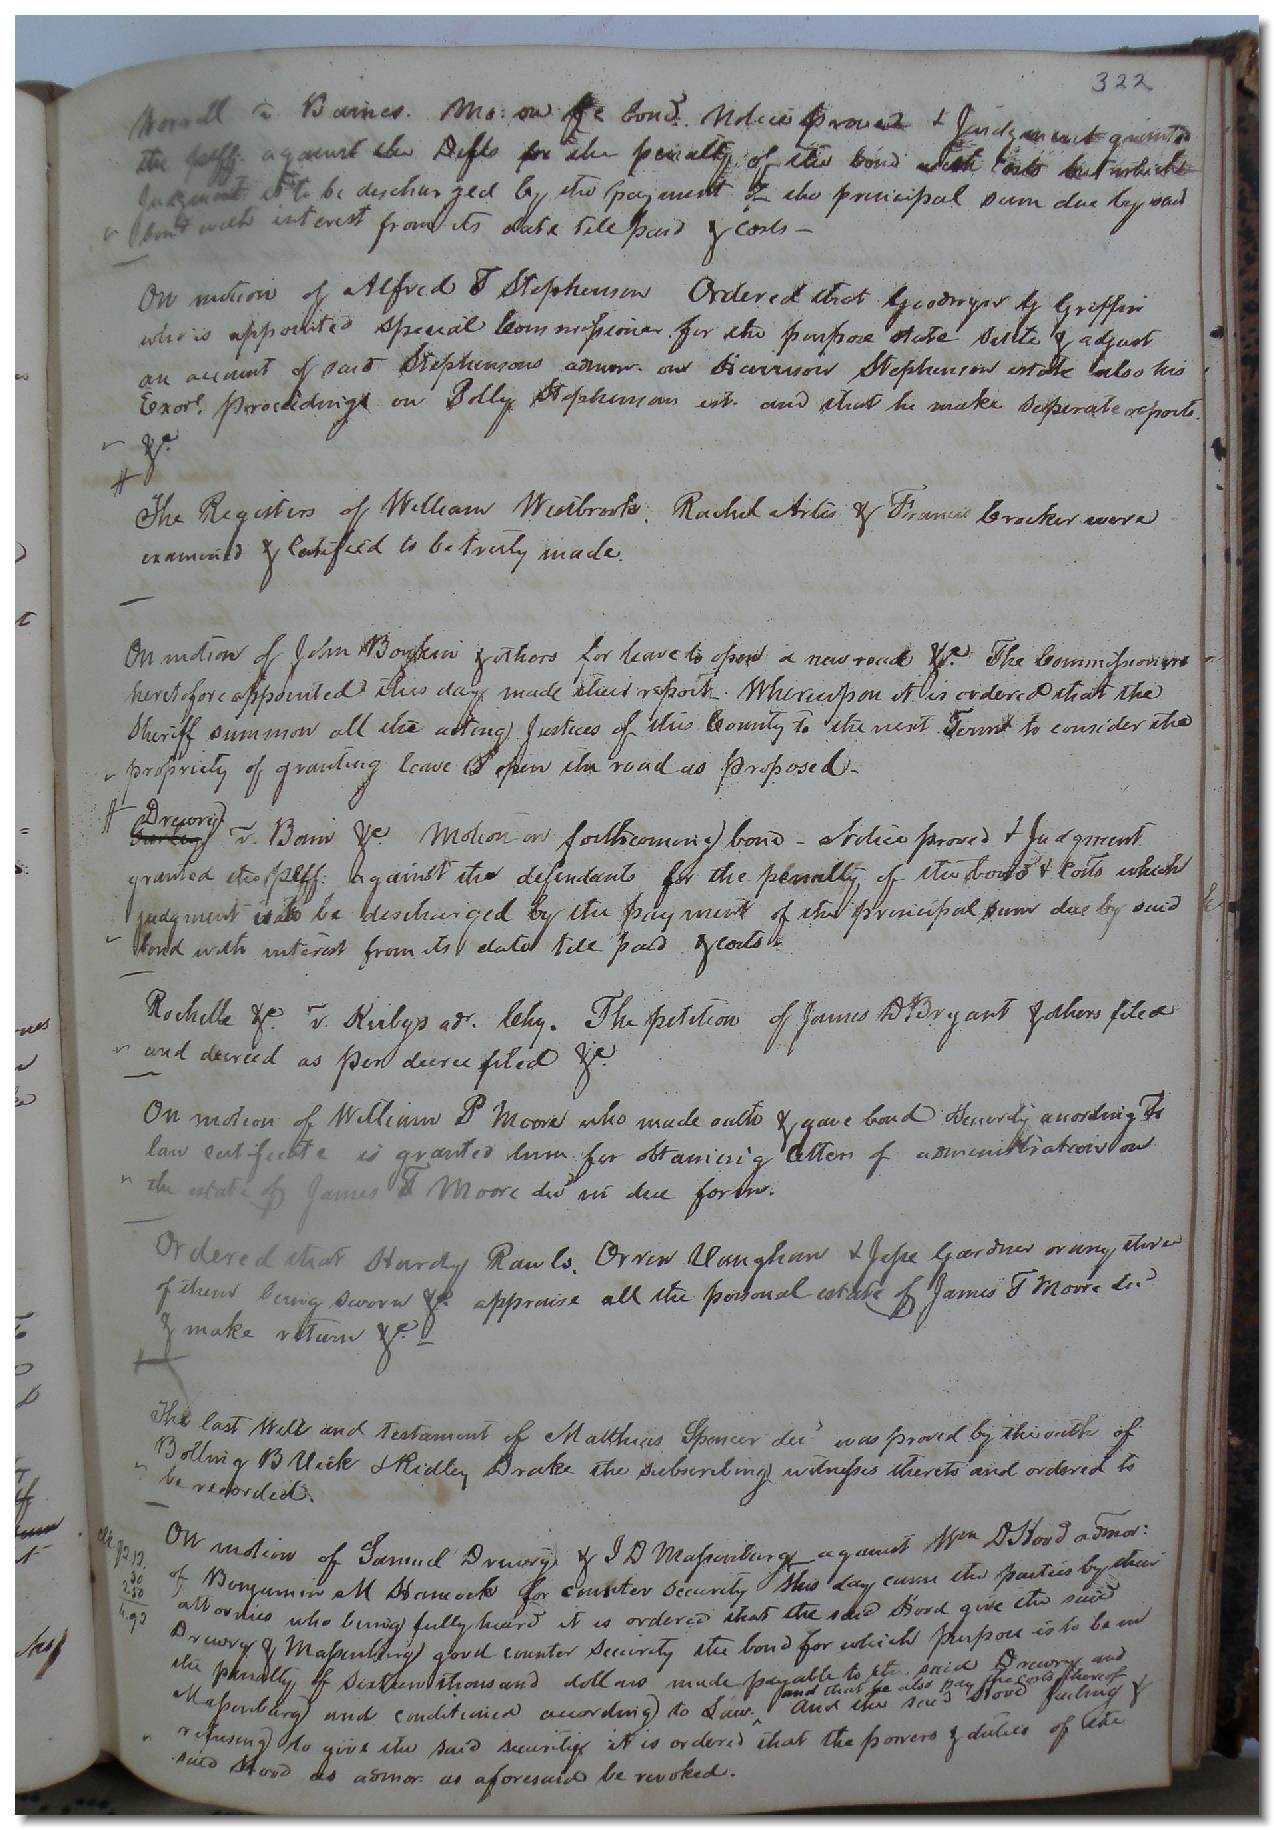 322
Worrell v Barnes. Mo: on fc bond. Notice proved & Judgment granted
the plff. against the Defts for the penalty of the bond with costs but which
Judgment is to be discharged by the payment of the principal sum due by said
bond with interest from its date till paid & costs –
On motion of Alfred T Stephenson Ordered that Goodwyn G Griffin
who is appointed special Commissioner for the purpose state settle & adjust
an account of said Stephensons admon. on Harrison Stephenson estate also his
Exors. proceedings on Polly Stephensons est. and that he make seperate reports
&c.
The Registers of William Westbrook, Rachel Artis & Francis Crocker were
examined & Certified to be truly made.
On motion of John Boykin & others for leave to open a new road &c. The Commissioners
heretofore appointed this day made their report. Whereupon it is ordered that the
Sheriff summon all the acting Justices of this County to the next Term to consider the
propriety of granting leave to open the road as proposed –
Drewry
v. Bain &c Motion on forthcoming bond – Notice proved & Judgment
granted the plff. against the defendants for the penalty of the bond & Costs which
judgment is to be discharged by the payment of the principal sum due by said
bond with interest from its date till paid & costs –
Rochelle &c. v. Kirbys adr. Chy. The petition of James D Bryant & others filed
and decreed as per decree filed &c.
On motion of William P Moore who made oath & gave bond & security according to
law certificate is granted him for obtaining letters of administration on
the estate of James T Moore decd in due form.
Ordered that Hardy Rawls, Orren Vaughan & Jesse Gardner or any three
of them being sworn &c. appraise all the personal estate of James T Moore decd
& make return &c. –
The last Will and testament of Matthias Spencer decd was proved by the oath of
Bolling B Vick & Ridley Drake the subscribing witnesses thereto and ordered to
be recorded.
On motion of Samuel Drewry & J D Massenburg against Wm D Hood admor:
of Benjamin M Hancock for counter security this day came the parties by their
attornies who being fully heard it is ordered that the said Hood give the said
Drewry & Massenburg good counter security the bond for which purpose is to be in
the penalty of sixteen thousand dollars made payable to the said Drewry and
Massenburg and conditioned according to Law. And the said Hood failing &
and that he also pay the costs thereof
refusing to give the said security it is ordered ^ that the powers & duties of the
said Hood as admor. as aforesaid be revoked.